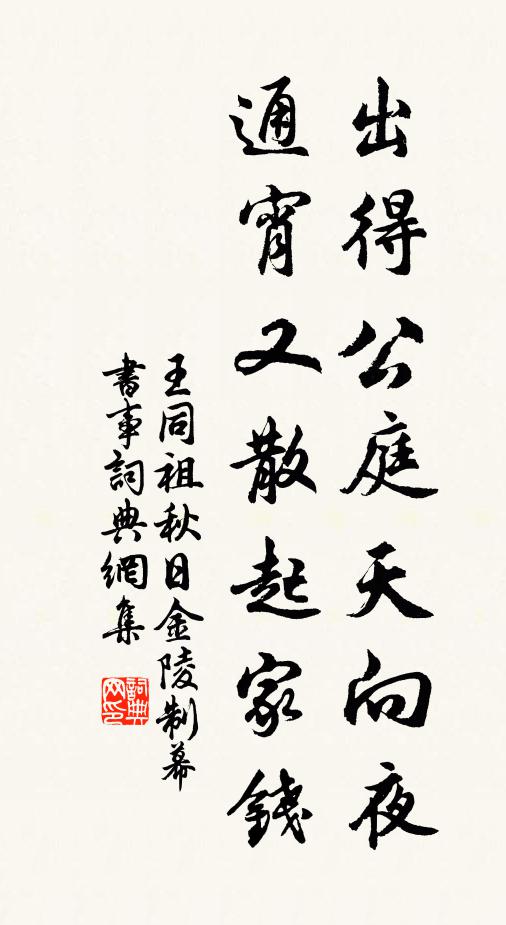 出得公庭天向夜
通宵又散起家錢
王同祖秋日金陵制幕
書事詞典網集
詞典網印